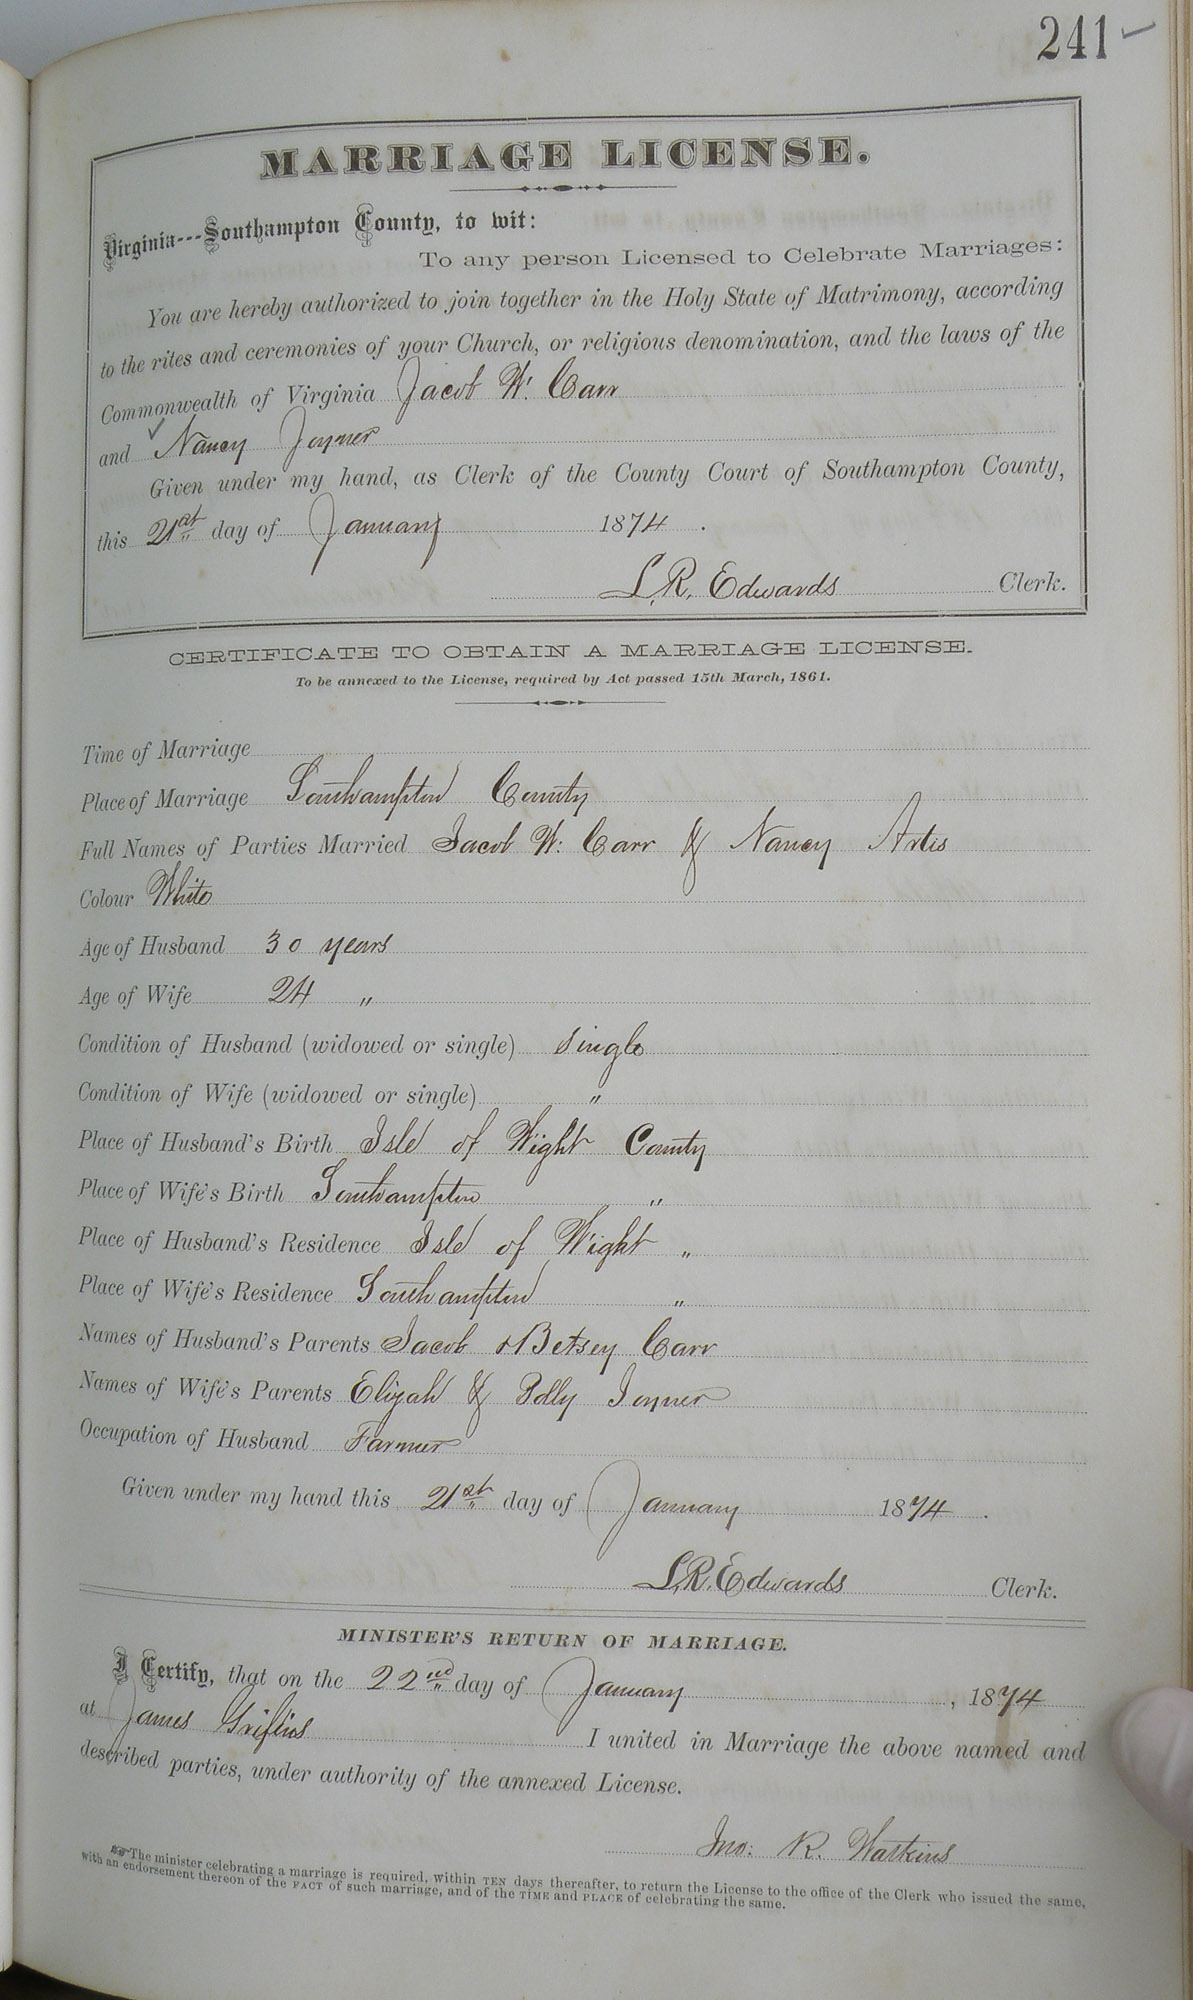 241
MARRIAGE LICENSE.
Virginia---Southampton County, to wit:
To any person Licensed to Celebrate Marriages:
You are hereby authorized to join together in the Holy State of Matrimony, according
to the rites and ceremonies of your Church, or religious denomination, and the laws of the
Commonwealth of Virginia Jacob W. Carr
and Nancy Joyner
Given under my hand, as Clerk of the County Court of Southampton County,
this 21st day of January 1874.
L. R. Edwards Clerk.
CERTIFICATE TO OBTAIN A MARRIAGE LICENSE.
To be annexed to the License, required by Act passed 15th March, 1861.
Time of Marriage
Place of Marriage Southampton County
Full Names of Parties Married Jacob W. Carr & Nancy Artis
Colour White
Age of Husband 30 years
Age of Wife 24 "
Condition of Husband (widowed or single) Single
Condition of Wife (widowed or single) "
Place of Husband's Birth Isle of Wight County
Place of Wife's Birth Southampton "
Place of Husband's Residence Isle of Wight "
Place of Wife's Residence Southampton "
Names of Husband's Parents Jacob & Betsey Carr
Names of Wife's Parents Elijah & Polly Joyner
Occupation of Husband Farmer
Given under my hand this 21st day of January 1874.
L. R. Edwards Clerk.
MINISTER'S RETURN OF MARRIAGE.
I Certify, that on the 22nd day of January, 1874
at James I united in Marriage the above named and
described parties, under authority of the annexed License.
Jno: R. Watkins
The minister celebrating a marriage is required, within TEN days thereafter, to return the License to the office of the Clerk who issued the same,
with an endorsement thereon of the FACT of such marriage, and of the TIME and PLACE of celebrating the same.